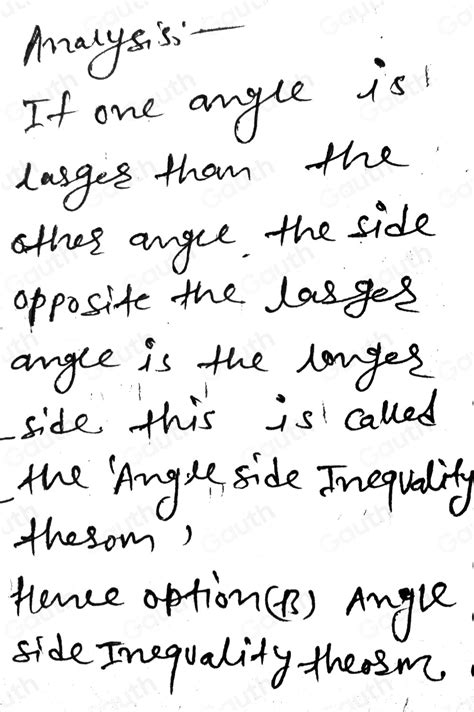 Analysis:—
If one angle is
larger than the
other angle. the side
opposite the larger
angle is the longer
side this is called
the 'Angle side Inequality
thesom,
Hence option(B) Angle
side Inequality theosm.